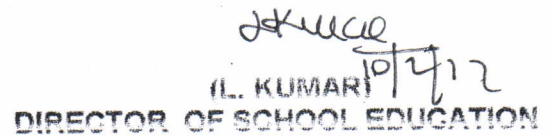 10/2/12
(L. KUMAR)
DIRECTOR OF SCHOOL EDUCATION